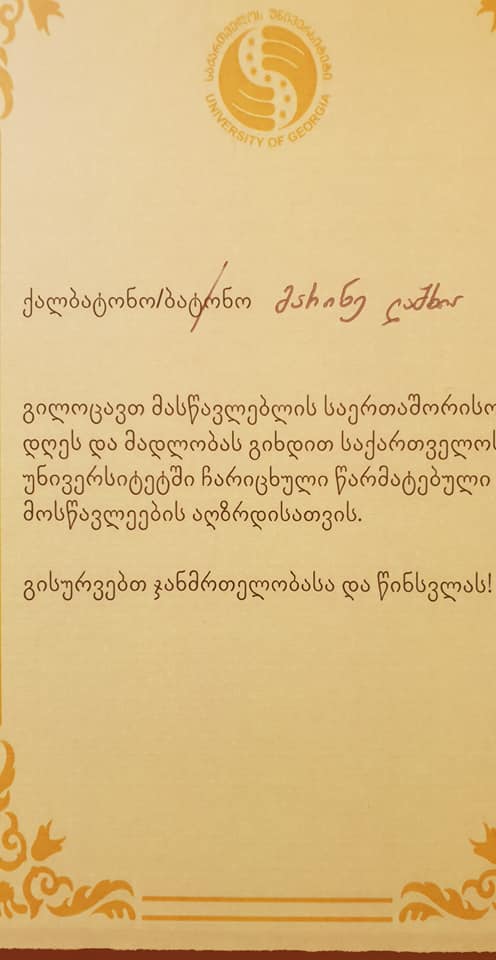 საქართველოს უნივერსიტეტი
UNIVERSITY OF GEORGIA
ქალბატონო/ბატონო მარინე
გილოცავთ მასწავლებლის საერთაშორისო
დღეს და მადლობას გიხდით საქართველოს
უნივერსიტეტში ჩარიცხული წარმატებული
მოსწავლეების აღზრდისათვის.
გისურვებთ ჯანმრთელობასა და წინსვლას!